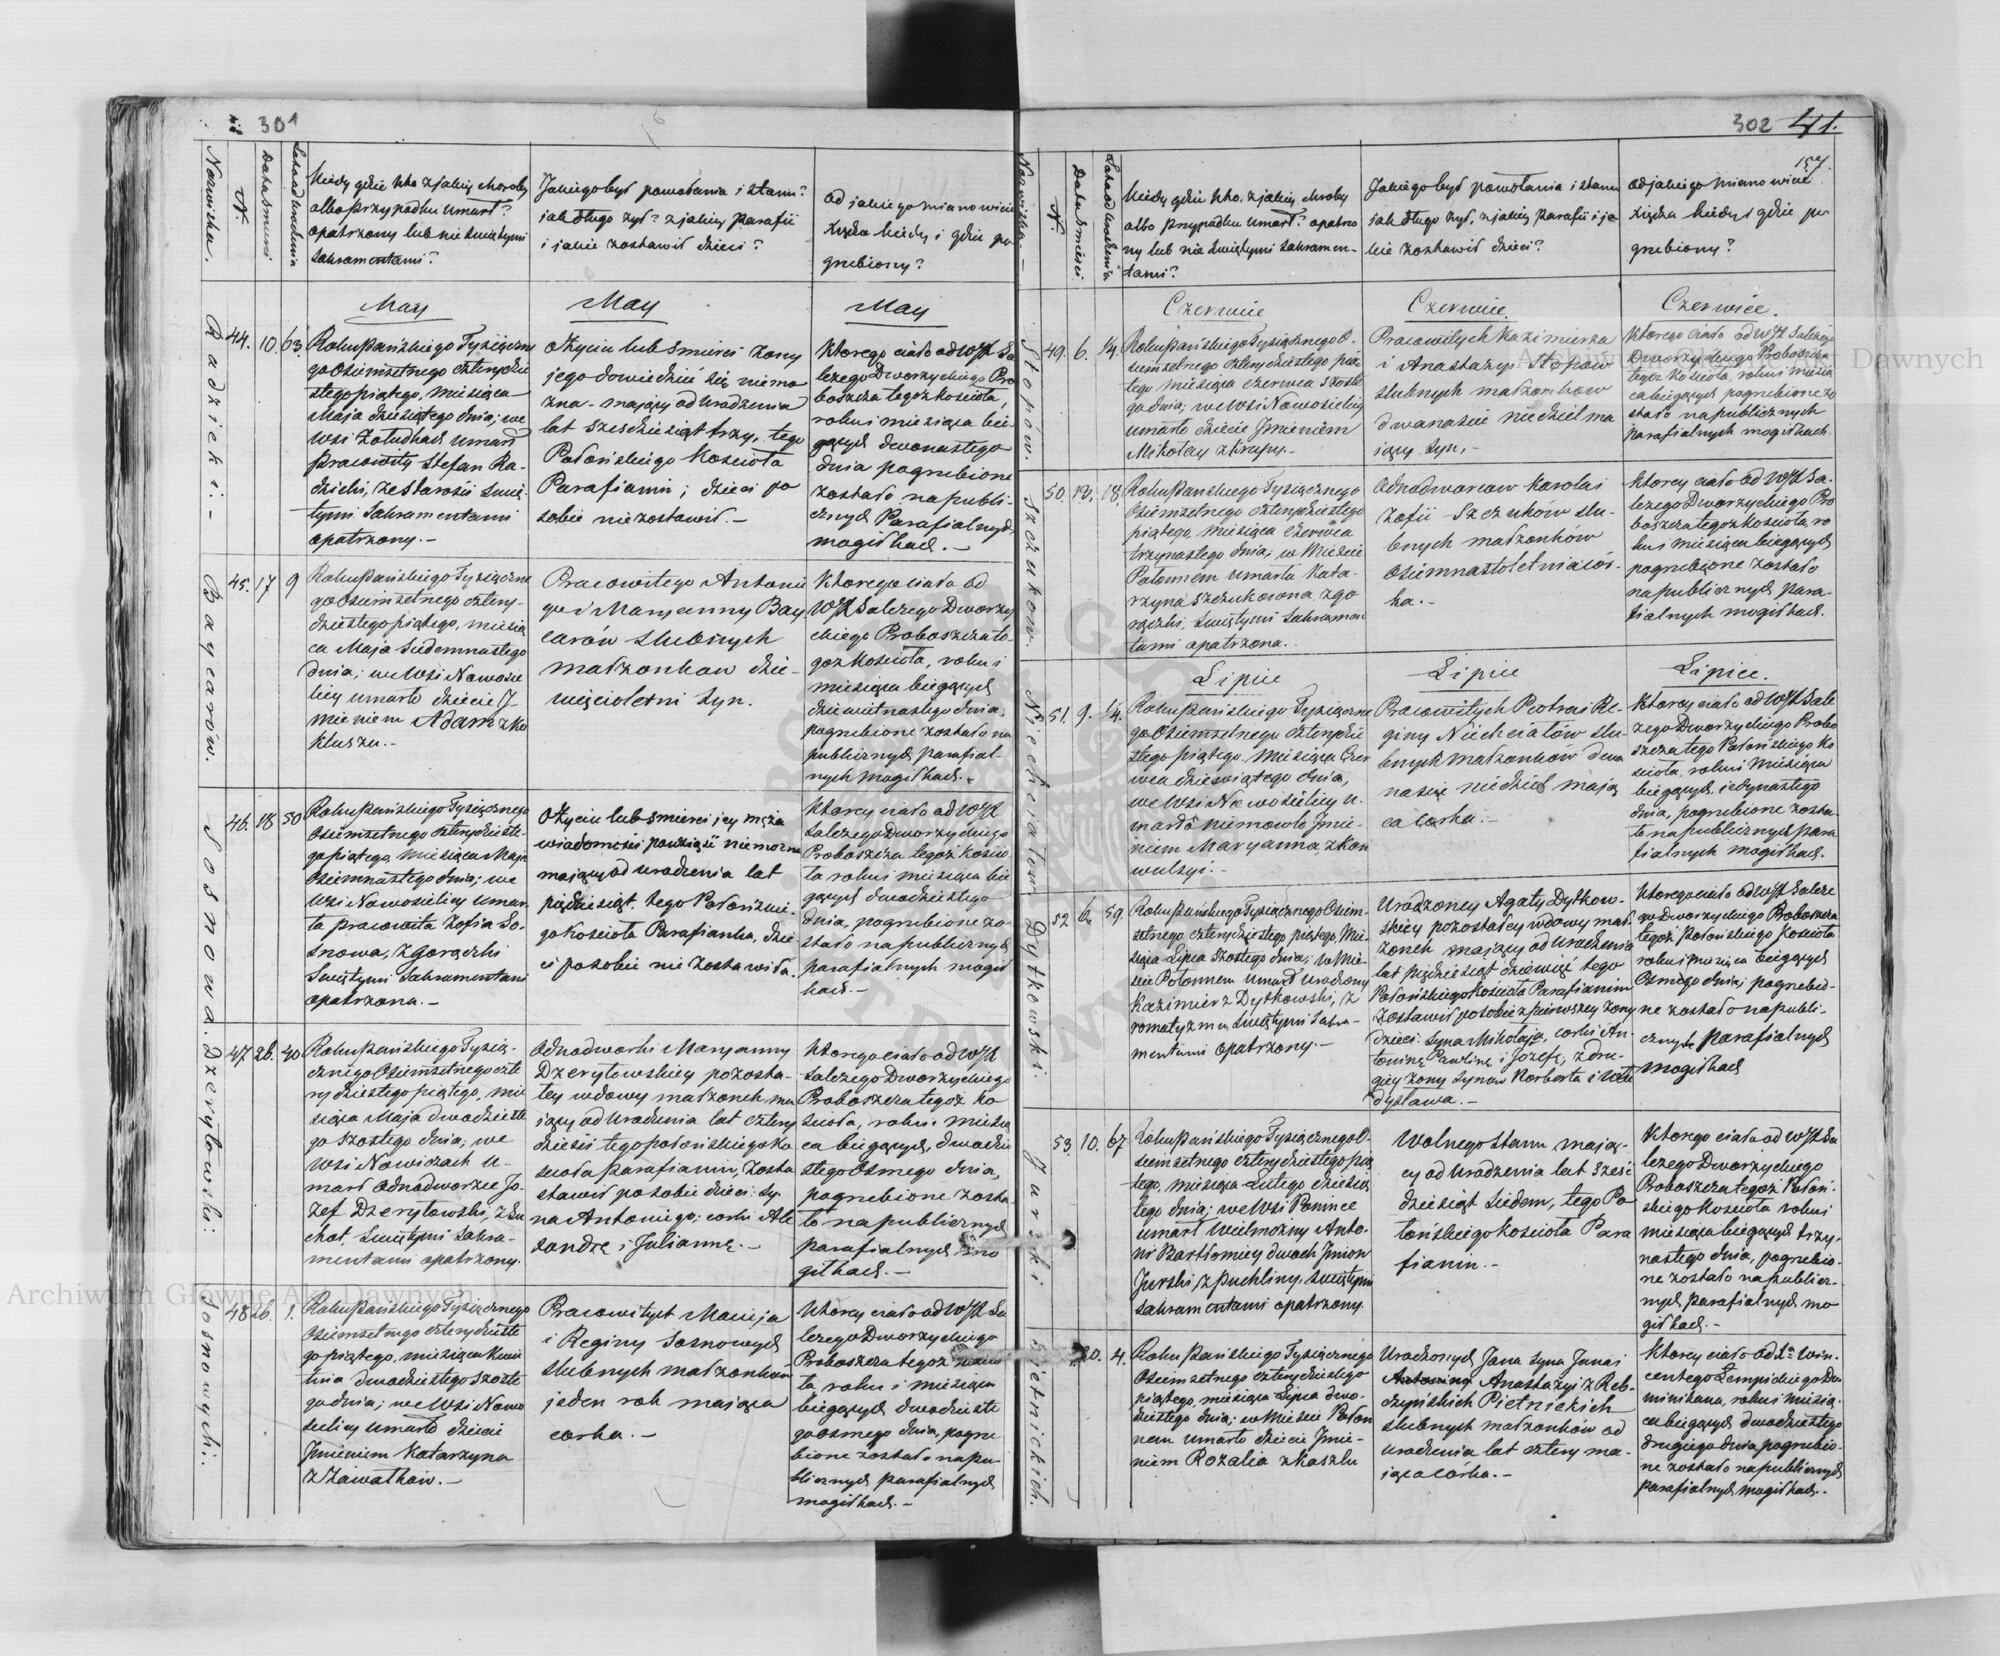 301
Nazwiska.
N.
Data śmierci
Lata od urodzenia
Kiedy gdzie kto z jakiej choroby
albo przypadku umarł?
opatrzony lub nie świętymi
sakramentami?
Jakiego był powołania i stanu?
jak długo żył? z jakiej parafii
i jakie zostawił dzieci?
od jakiego mianowicie
księdza kiedy i gdzie po
grzebiony?
May
May
May
Radzicki.-
44.
10.
63.
Roku Pańskiego Tysiączne
go Osiemsetnego czterydzie
stego piątego, miesiąca
Maja dziesiątego dnia; we
wsi Załudkach umarł
pracowity Stefan Ra-
dzicki, ze starości świę-
tymi Sakramentami
opatrzony.-
O życiu lub śmierci żony
jego dowiedzieć się niemo
żna- mający od urodzenia
lat sześdziesiąt trzy, tego
Połońskiego Kościoła
Parafianin; dzieci po
sobie nie zostawił.-
Ktorego ciało od WJX Sa
lezego Dworzyckiego Pro
boszcza tegoż kościoła,
roku i miesiąca bie-
gących dwónastego
dnia pogrzebione
zostało na publi-
cznych Parafialnych
mogiłkach.-
Baycarów.
45.
17
9
Roku Pańskiego Tysiączne
go Osiemsetnego cztery-
dziestego piątego, miesią
ca Maja Siedemnastego
dnia; we wsi Nowosie
licy umarło dziecie J-
mieniem Adam z ko
kluszu.-
Pracowitego Antonie
go i Maryanny Bay
carów ślubnych
małżonkow dzie-
więcioletni syn.
Ktorego ciało od
WJX Salezego Dworzy
ckiego Proboszcza te-
goż kościoła, roku i
miesiąca biegących
dziewietnastego dnia,
pogrzebione zostało na
publicznych parafial-
nych mogiłkach.-
Sosnowa.
46.
18
50
Roku Pańskiego Tysiącznego
Osiemsetnego czterydzieste
go piątego, miesiąca Maja
Osiemnastego dnia; we
wsi Nowosielicy umar
ła pracowita Zofia So-
snowa, z gorączki
świętymi Sakramentami
opatrzona.-
O życiu lub śmierci jej męża
wiadomości powziąść niemożna
mająca od urodzenia lat
pięćdziesiąt. tego Połońskie-
go kościoła Parafianka, dzie
ci po sobie nie zostawiła.
Ktorey ciało od WJX
Salezego Dworzyckiego
Proboszcza tegoż kościo
ła roku i miesiąca bie
gących dwudziestego
dnia, pogrzebione zo-
stało na publicznych
parafialnych mogił
kach.-
Dzerytowski.
47
26.
40
Roku Pańskiego Tysią-
cznego Osiemsetnego czte
rydziestego piątego, mie
siąca Maja dwudzieste
go szostego dnia; we
wsi Nowiczach u-
marł Odnodworzec Jo
zef Dzerytowski, z su
chot, świętymi Sakra-
mentami opatrzony.
Odnodworki Maryanny
Dzerytowskiey pozosta-
łey wdowy małżonek ma
jący od urodzenia lat cztery
dzieści tego połońskiego ko
ścioła parafianin, zosta
stawił po sobie dzieci: sy-
na Antoniego; corki Ale
xandrę i Juliannę.-
Ktorego ciało od WJX
Salezego Dworzyckiego
Proboszcza tegoż ko
ścioła, roku i miesią
ca biegących, dwudzie
stego Osmego dnia,
pogrzebione zosta
ło na publicznych
parafialnych mo
giłkach.-
Sosnowych.
48
26.
1.
Roku Pańskiego Tysiącznego
Osiemsetnego czterydzieste
go piątego, miesiąca Kwie
tnia dwudziestego szoste
go dnia; we wsi Nowo
sielicy umarło dziecie
Jmieniem Katarzyna
z Zawałkow.-
Pracowitych Macieja
i Reginy Sosnowych
ślubnych małżonkow
jeden rok mająca
corka.-
Ktorey ciało od WJX Sa
lezego Dworzyckiego
Proboszcza tegoż kościo
ła roku i miesiąca
biegących dwudzieste
go osmego dnia, pogrze
bione zostało na pu-
blicznych parafialnych
mogiłkach.-
302
41.
157.
Nazwiska.-
N.
Data śmierci
Lata od urodzenia
Kiedy gdzie kto, z jakiej choroby
albo przypadku umarł? opatrzo
ny lub nie świętymi sakramen-
tami?
Jakiego był powołania i stanu
jak długo żył, z jakiej parafii i ja
kie zostawił dzieci?
od jakiego mianowicie
księdza kiedy i gdzie po
grzebiony?
Czerwiec
Czerwiec.
Czerwiec.
Stopów.
49.
6.
1/4.
Roku Pańskiego Tysiącznego O-
siemsetnego czterydziestego pią
tego miesiąca czerwca szoste
go dnia; we wsi Nowosielicy
umarło dziecie Jmieniem
Mikołay z krupy.-
Pracowitych Kazimierza
i Anastazyi Stopow
ślubnych małżonkow
dwanaście niedziel ma
jący syn.-
Ktorego ciało od WJX Salezego
Dworzyckiego Proboszcza
tegoż kościoła, roku i miesią
ca biegących pogrzebione zo
stało na publicznych
parafialnych mogiłkach.
Szczukow.
50.
13.
18.
Roku Pańskiego Tysiącznego
Osiemsetnego czterydziestego
piątego, miesiąca czerwca
trzynastego dnia; w Mieście
Połonnem umarła Kata-
rzyna Szczukowna z go
rączki, świętymi Sakramen
tami opatrzona.
Odnodworcow Karola i
Zofii Szczuków ślu-
bnych małżonków
Osiemnastoletnia cór-
ka.-
Ktorey ciało od WJX Sa-
lezego Dworzyckiego Pro
boszcza tegoż kościoła, ro
ku i miesiąca biegących
pogrzebione zostało
na publicznych para-
fialnych mogiłkach.
Lipiec
Lipiec
Lipiec.
Niechciałow
51.
9.
1/4.
Roku Pańskiego Tysiączne
go Osiemsetnego czterydzie
stego piątego miesiąca Czer
wca dziewiątego dnia,
we wsi Nowosielicy u-
marło niemowle Jmie-
niem Maryanna z kon
wulsyi.-
Pracowitych Piotra i Re-
giny Niechciałów ślu-
bnych małżonków dwa
naście niedziel mają
ca corka.-
Ktorey ciało od WJX Sale
zego Dworzyckiego Probo
szcza tego Połońskiego Ko
ścioła, roku i miesiąca
biegących jedynastego
dnia, pogrzebione zosta-
ło na publicznych para
fialnych mogiłkach.
Dytkowski.
52
6.
59.
Roku Pańskiego Tysiącznego Osiem-
setnego czterydziestego piątego, Mie-
siąca Lipca szostego dnia; w Mie-
ście Połonnem umarł Urodzony
Kazimierz Dytkowski, z
romatyzmu świętymi Sakra-
mentami opatrzony.-
Urodzoney Agaty Dytkow-
skiey pozostałey wdowy mał-
żonek mający od urodzenia
lat pięćdziesiąt dziewięć tego
Połońskiego kościoła Parafianin
Zostawił po sobie z pierwszey żony
dzieci: syna Mikołaja, corki An-
toninę Pawlinę i Jozefę, z dru-
giey żony synow Norberta i Wła
dysława.-
Ktorego ciało od WJX Saleze
go Dworzyckiego Proboszcza
tegoż połońskiego kościoła
roku i miesiąca biegących
Osmego dnia, pogrzebio-
ne zostało na publi-
cznych parafialnych
mogiłkach
Jurski
53.
10.
67
Roku Pańskiego Tysiącznego O-
siemsetnego czterydziestego pią
tego, miesiąca Lutego dziesią
tego dnia; we wsi Poninee
umarł Wielmożny Anto-
ni Bartłomiey dwoch Jmion
Jurski, z puchliny, świętymi
sakramentami opatrzony.
Wolnego stanu, mają-
cy od urodzenia lat sześć
dziesiąt siedem, tego Po
łońskiego kościoła Para
fianin.-
Ktorego ciało od WJX Sa
lezego Dworzyckiego
Proboszcza tegoż Połoń-
skiego kościoła roku i
miesiąca biegących trzy-
nastego dnia, pogrzebio-
ne zostało na publicz-
nych parafialnych mo
giłkach.-
Pietnickich.
20.
4.
Roku Pańskiego Tysiącznego
Osiemsetnego czterydziestego
piątego, miesiąca Lipca dwu-
dziestego dnia; w Mieście Połon
nem umarło dziecie Jmie-
niem Rozalia z kaszlu
Urodzonych Jana syna Jana i
Antoniny Anastazyi z Reb-
czyńskich Pietnickich
ślubnych małżonków od
urodzenia lat cztery ma-
jąca córka.-
Ktorey ciało od X. Win-
centego Łempickiego Do
minikana, roku i miesią-
ca biegących dwudziestego
drugiego dnia pogrzebio-
ne zostało na publicznych
parafialnych mogiłkach.-
Archiwum Główne Akt Dawnych
Archiwum Główne Akt Dawnych